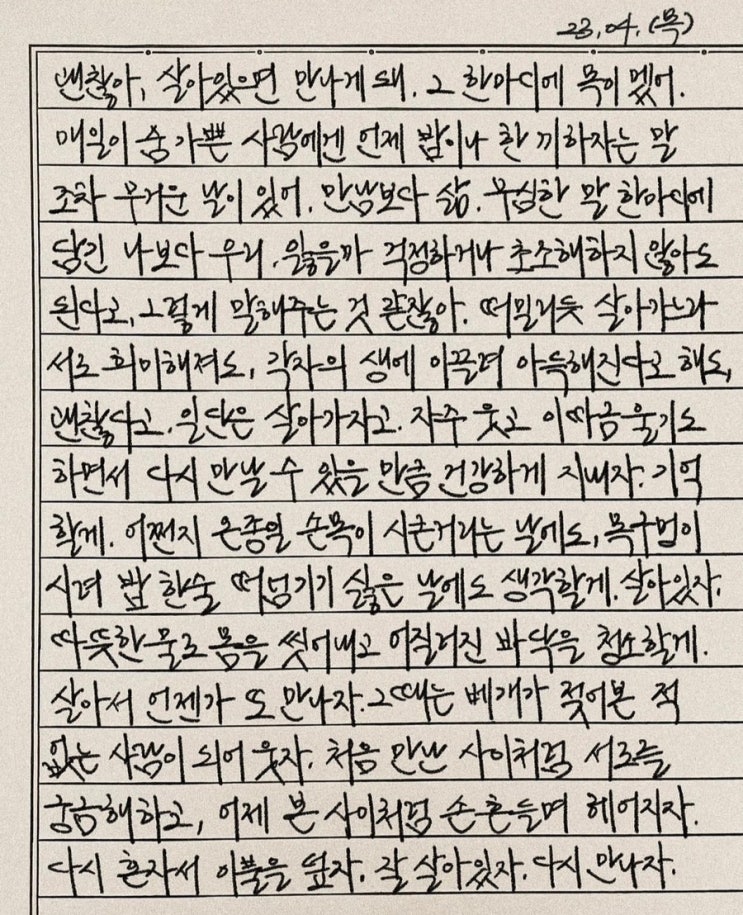 23.04.(목)
괜찮아, 살아있으면 만나게 돼. 그 한마디에 목이 멨어.
매일이 숨 가쁜 사람에겐 언제 밥이나 한 끼하자는 말
조차 무거운 날이 있어. 만남보다 삶. 무심한 말 한마디에
담긴 나보다 우리. 잃을까 걱정하거나 초조해하지 않아도
된다고, 그렇게 말해주는 것 같잖아. 떠밀리듯 살아가느라
서로 희미해져도, 각자의 생에 이끌려 아득해진다고 해도,
괜찮다고. 일단은 살아가자고. 자주 웃고 이따금 울기도
하면서 다시 만날 수 있을 만큼 건강하게 지내자. 기억
할게. 어쩐지 온종일 손목이 시큰거리는 날에도, 목구멍이
시려 밥 한술 떠넘기기 싫은 날에도 생각할게. 살아있자.
따뜻한 물로 몸을 씻어내고 어질러진 바닥을 청소할게.
살아서 언젠가 또 만나자. 그때는 베개가 젖어본 적
없는 사람이 되어 웃자. 처음 만난 사이처럼 서로를
궁금해하고, 어제 본 사이처럼 손 흔들며 헤어지자.
다시 혼자서 이불을 덮자. 잘 살아있자. 다시 만나자.